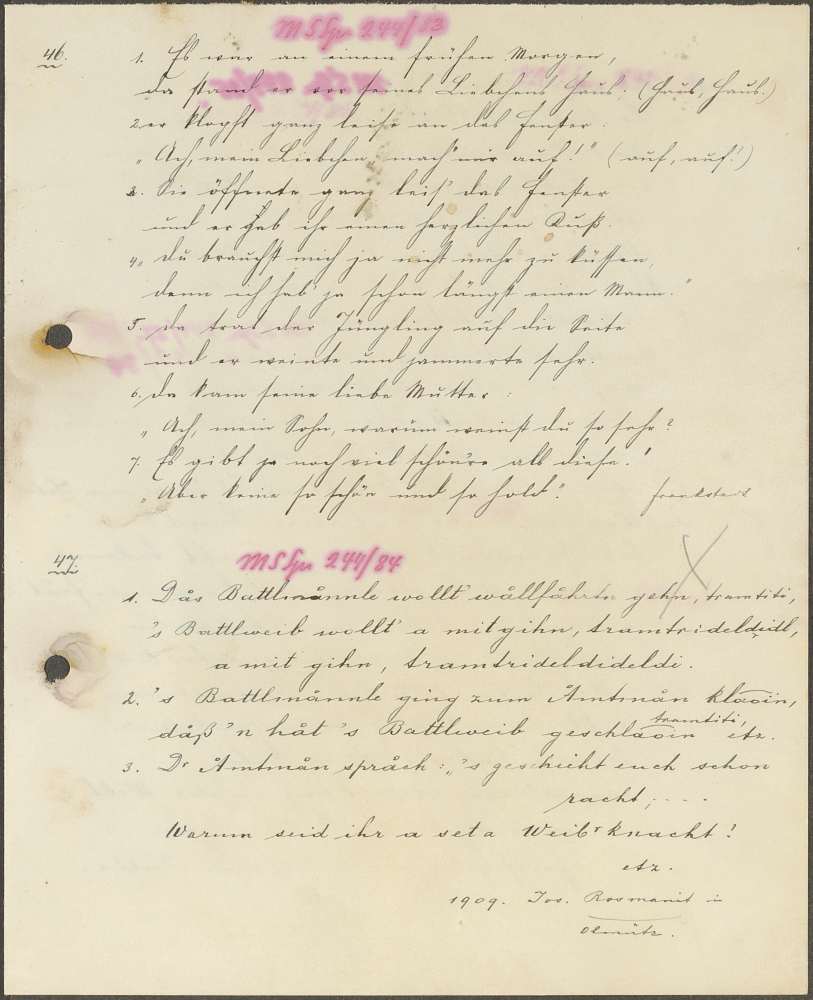 MS Spr 244/83
46.
1. Es war an einem frühen Morgen,
da stand er vor seines Liebchens Haus. (Haus, Haus.)
2. er klopft ganz leise an das Fenster:
"Ach, mein Liebchen, mach' mir auf!" (auf, auf!)
3. Sie öffnete ganz leis' das Fenster
und er gab ihr einen herzlichen Kuß.
4. "Du brauchst mich ja nicht mehr zu küssen,
denn ich hab' ja schon längst einen Mann."
5. Da trat der Jüngling auf die Seite
und er weinte und jammerte sehr.
6. Da kam seine liebe Mutter:
"Ach, mein Sohn, warum weinst du so sehr?
7. Es gibt ja noch viel schön're als diese."
"Aber keine so schön und so hold." Frankstadt
47.
MS Spr 244/84
1. Dås Battlmånnle wollt' wållfåhrtn gehn, tramtiti,
's Battlweib wollt' a mitgihn, tramtrideldidl,
a mit gihn, tramtrideldideldi.
2. 's Battlmånnle ging zum Åmtmån klåoin,
dåß 'n håt 's Battlweib geschlåoin tramtiti, etz.
3. Dr Åmtmån språch: "'s geschieht euch schon
racht; ...
Warum seid ihr a seta Weibrknacht!
etz.
1909. Jos. Rosmanit in
Olmütz.